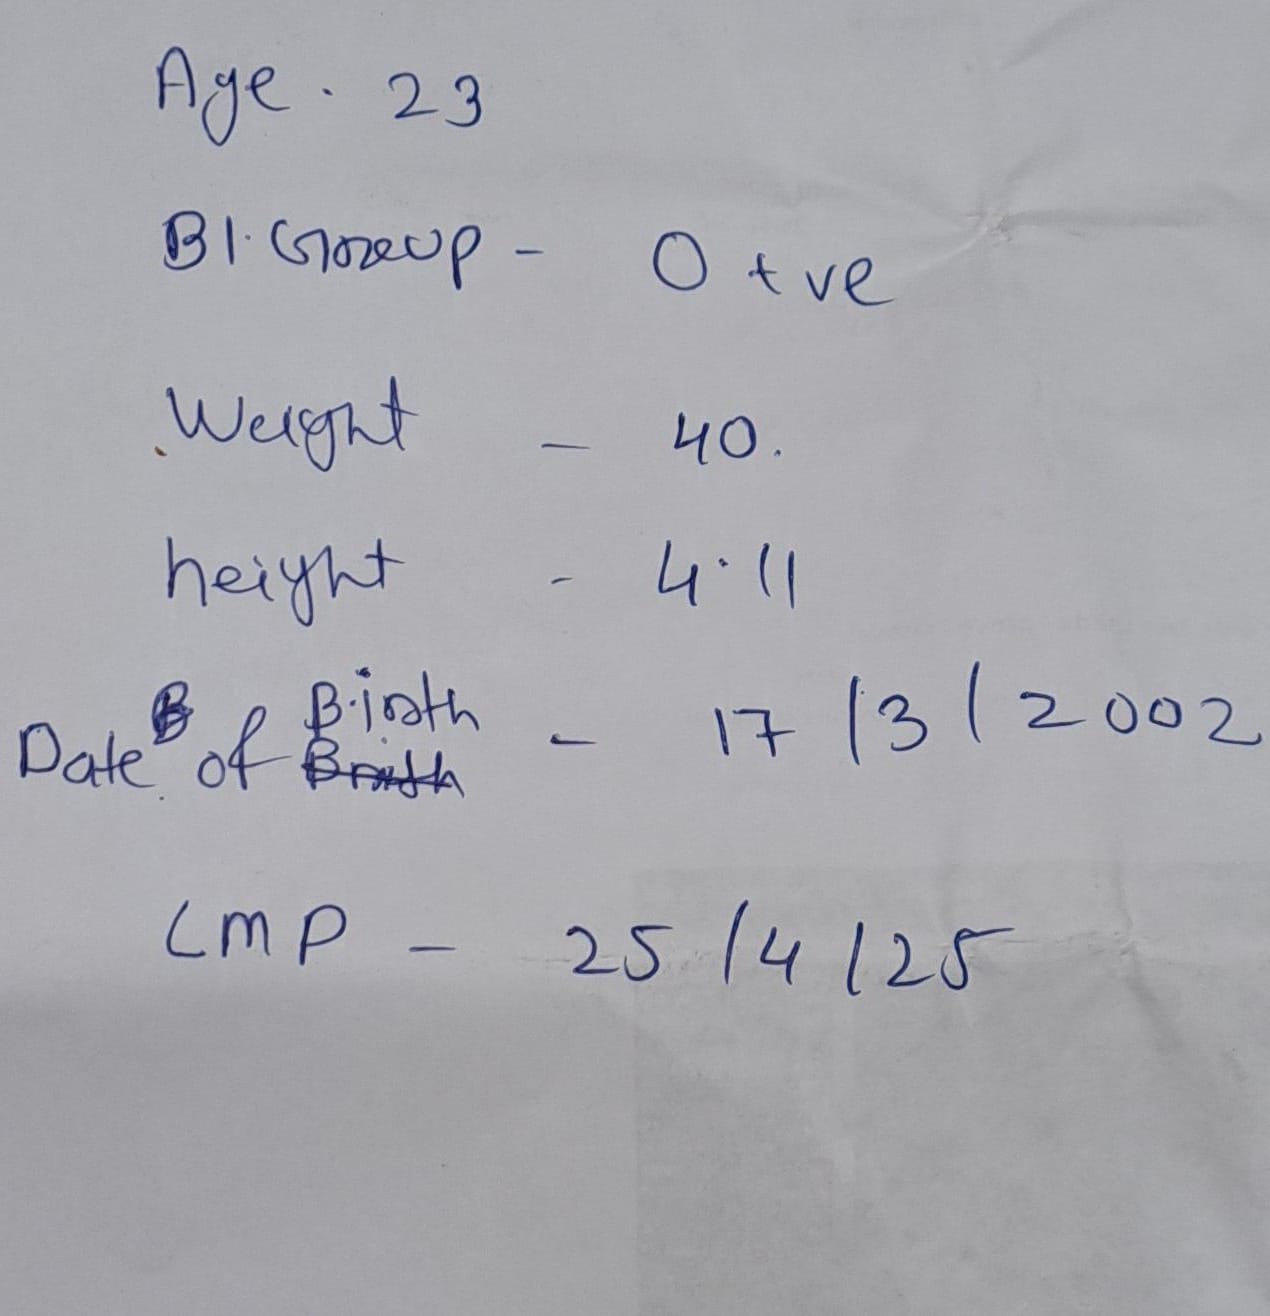 Age. 23
Bl. Group - O +ve
Weight - 40.
height - 4.11
Date of Birth - 17/3/2002
LMP - 25/4/25